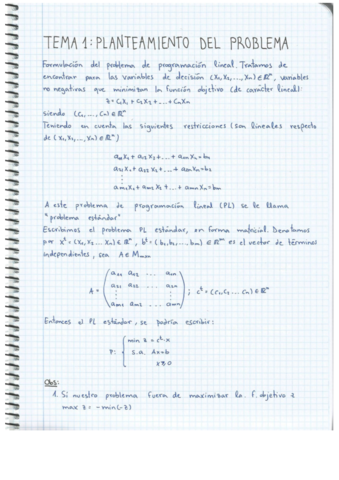 TEMA 1: PLANTEAMIENTO DEL PROBLEMA
Formulación del problema de programación lineal. Tratamos de
encontrar para las variables de decisión (x₁, x₂, ..., xₙ) ∈ ℝⁿ, variables
no negativas que minimizan la función objetivo (de carácter lineal):
z = c₁x₁ + c₂x₂ + ... + cₙxₙ
siendo (c₁, ..., cₙ) ∈ ℝⁿ
Teniendo en cuenta las siguientes restricciones (son lineales respecto
de (x₁, x₂, ..., xₙ)):
a₁₁x₁ + a₁₂x₂ + ... + a₁ₙxₙ = b₁
a₂₁x₁ + a₂₂x₂ + ... + a₂ₙxₙ = b₂
⋮
aₘ₁x₁ + aₘ₂x₂ + ... + aₘₙxₙ = bₘ
A este problema de programación lineal (PL) se le llama
"problema estándar"
Escribimos el problema PL estándar, en forma matricial. Denotamos
por xᵗ = (x₁, x₂ ... xₙ) ∈ ℝⁿ, bᵗ = (b₁, b₂, ..., bₘ) ∈ ℝᵐ es el vector de términos
independientes, sea A ∈ Mₘₓₙ
A = ( a₁₁ a₁₂ ... a₁ₙ
a₂₁ a₂₂ ... a₂ₙ
⋮ ⋮ ⋮
aₘ₁ aₘ₂ ... aₘₙ ) ; cᵗ = (c₁, c₂ ... cₙ) ∈ ℝⁿ
Entonces el PL estándar, se podría escribir:
min z = cᵗ·x
P: { s.a. Ax = b
x ≥ 0
Obs:
1. Si nuestro problema fuera de maximizar la f. objetivo z
max z = -min(-z)